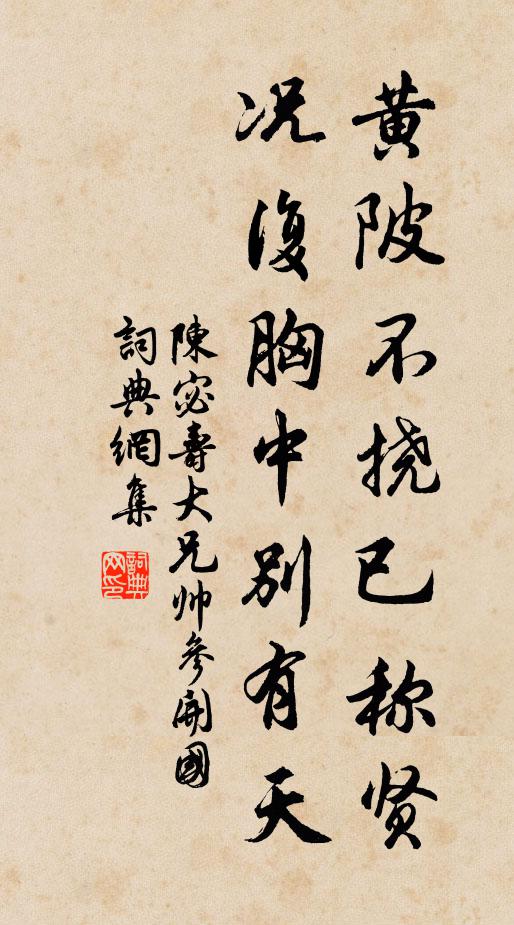 黄陂不挠已称贤
况復胸中别有天
陳宓壽大兄帅參開國
詞典網集
詞典网印